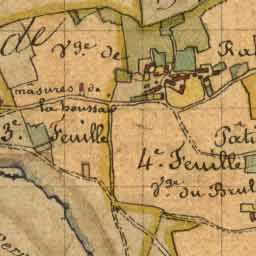 de
Vge. de
masures de
la houssaie
3e. Feuille
4e. Feuille
Vge. du Brul